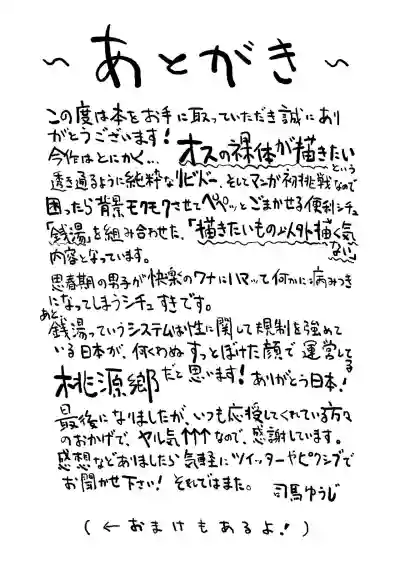 ～あとがき～
この度は本をお手に取っていただき誠にあり
がとうございます!
今作はとにかく… オスの裸体が描きたい
という
透き通るように純粋なリビドー、そしてマンガ初挑戦なので
困ったら背景モクモクさせてペペッとごまかせる便利シチュ
「銭湯」を組み合わせた、「描きたいもの以外描く気
ない」
内容となっています。
思春期の男子が快楽のワナにハマって何かに病みつき
になってしまうシチュすきです。
あと、
銭湯っていうシステムは性に関して規制を強めて
いる日本が、何くわぬすっとぼけた顔で運営してる
桃源郷だと思います! ありがとう日本!
最後になりましたが、いつも応援してくれている方々
のおかげで、ヤル気↑↑↑なので、感謝しています。
感想などありましたら気軽にツイッターやピクシブで
お聞かせ下さい! それではまた。 司馬ゆうじ
(←おまけもあるよ!)